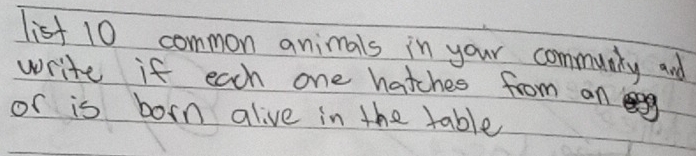 list 10 common animals in your community and
write if each one hatches from an egg
or is born alive in the table